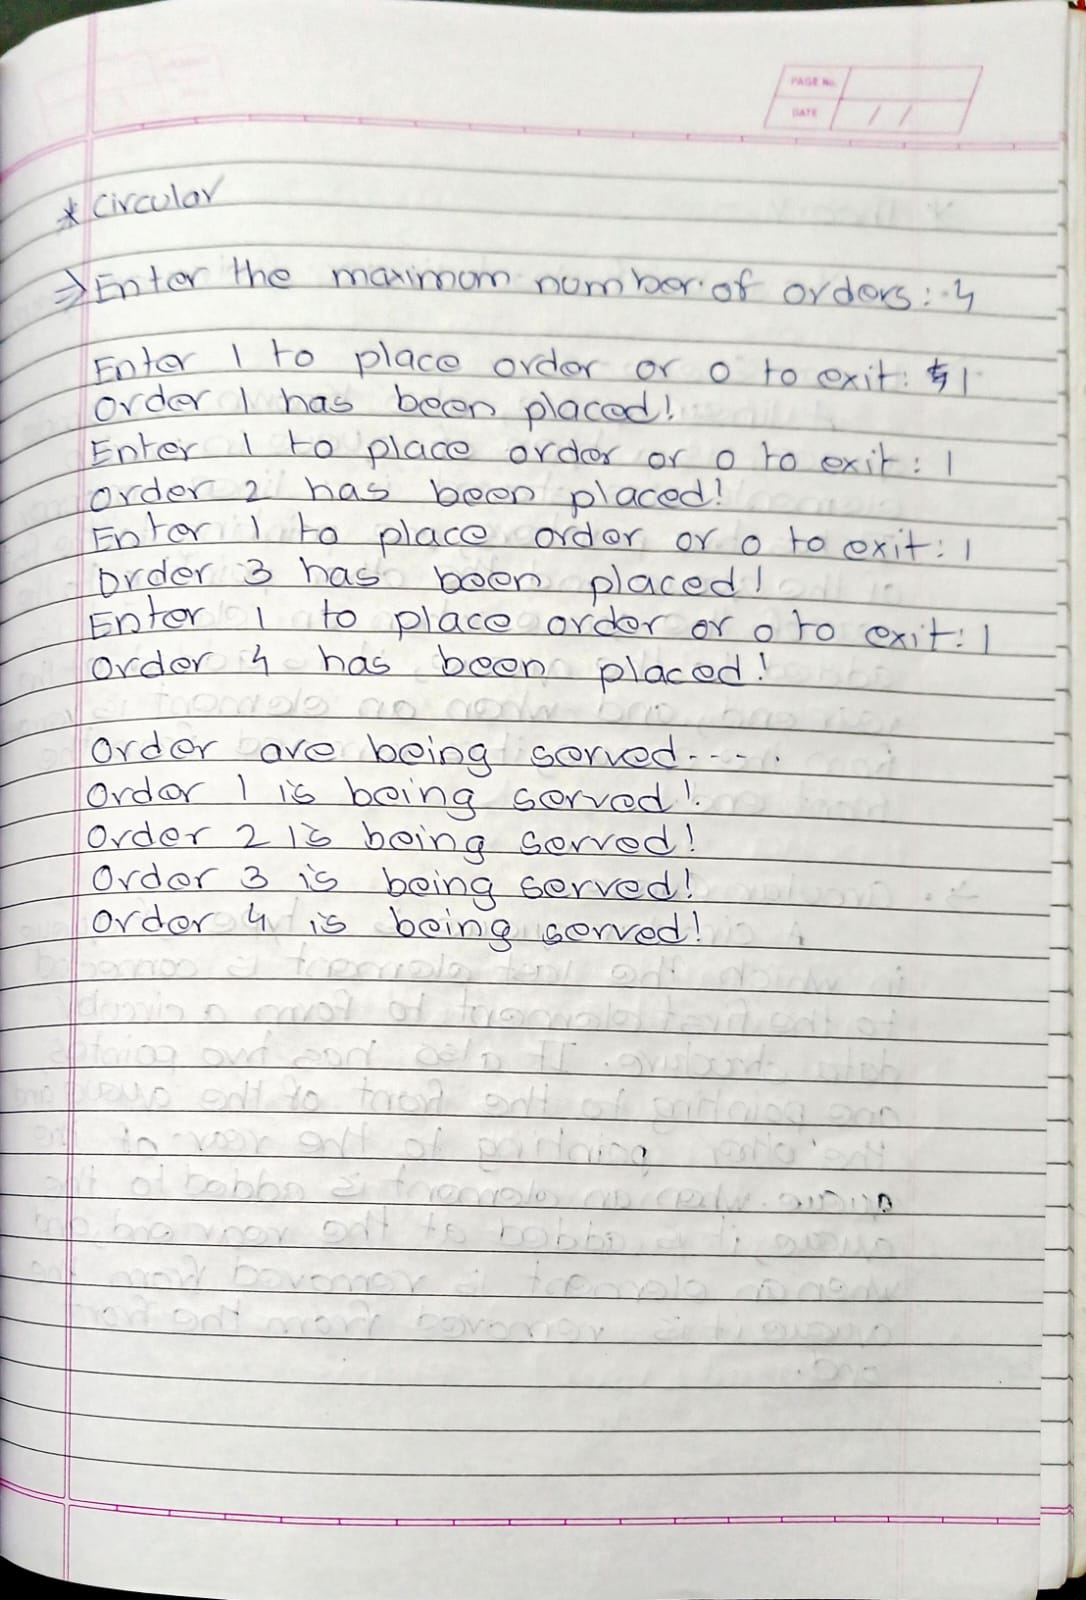 PAGE No.
DATE / /
* Circular
⇒ Enter the maximum number of orders: 4
Enter 1 to place order or 0 to exit: 1
Order 1 has been placed!
Enter 1 to place order or 0 to exit: 1
Order 2 has been placed!
Enter 1 to place order or 0 to exit: 1
Order 3 has been placed!
Enter 1 to place order or 0 to exit: 1
Order 4 has been placed!
Order are being served....
Order 1 is being served!
Order 2 is being served!
Order 3 is being served!
Order 4 is being served!